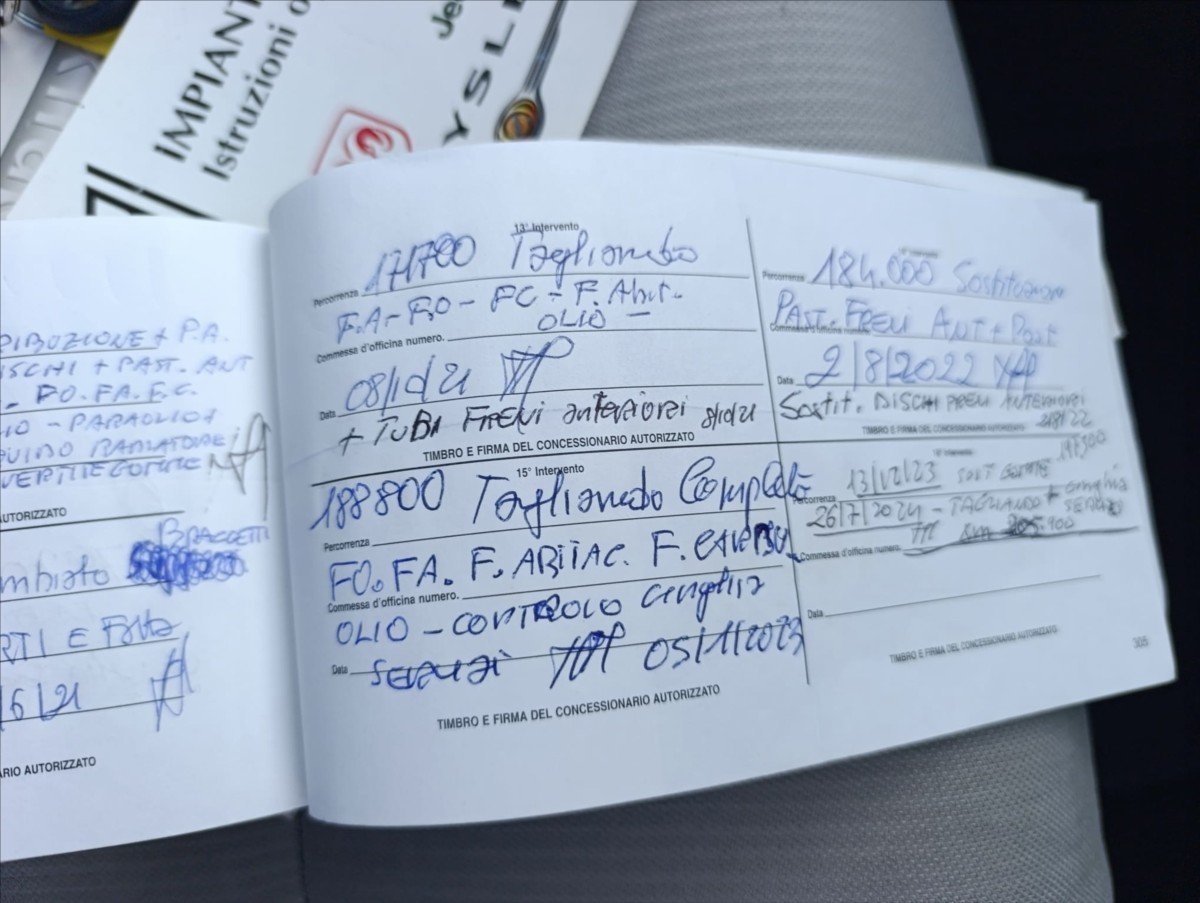 IMPIANT
Istruzioni o
Je
YSLE
RIBUZIONE + P.A.
ISCHI + PAST. ANT
- FO. FA. F.C.
IO - PARAOLIO +
QUIDO RADIATORE
VERTITEGOMME
AUTORIZZATO
BRACCETTI
mbiato
RTI E
/6/21
ARIO AUTORIZZATO
13° Intervento
171700 Tagliando
Percorrenza
F.A - F.O - FC - F. Abit.
OLIO -
Commessa d'officina numero.
08/10/21
Data
+ TUBI FRENI anteriori 8/10/21
TIMBRO E FIRMA DEL CONCESSIONARIO AUTORIZZATO
15° Intervento
188800 Tagliando Completo
Percorrenza
FO. FA. F. ABITAC. F.
Commessa d'officina numero.
OLIO - CONTROLO cinghia
Data
SERVIZI 05/1/2023
TIMBRO E FIRMA DEL CONCESSIONARIO AUTORIZZATO
Intervento
Percorrenza 184.000 Sostituzione
PAST. FRENI ANT + POST
Commessa d'officina numero.
Data 2/8/2022
Sostit. DISCHI FRENI ANTERIORI
2/8/22
TIMBRO E FIRMA DEL CONCESSIONARIO AUTORIZZATO
197300
13/12/23 SOST GOMME
Percorrenza
26/7/2024 - TAGLIANDO + cinghia
SERVIZI
km 205.900
Commessa d'officina numero.
Data
TIMBRO E FIRMA DEL CONCESSIONARIO AUTORIZZATO
305